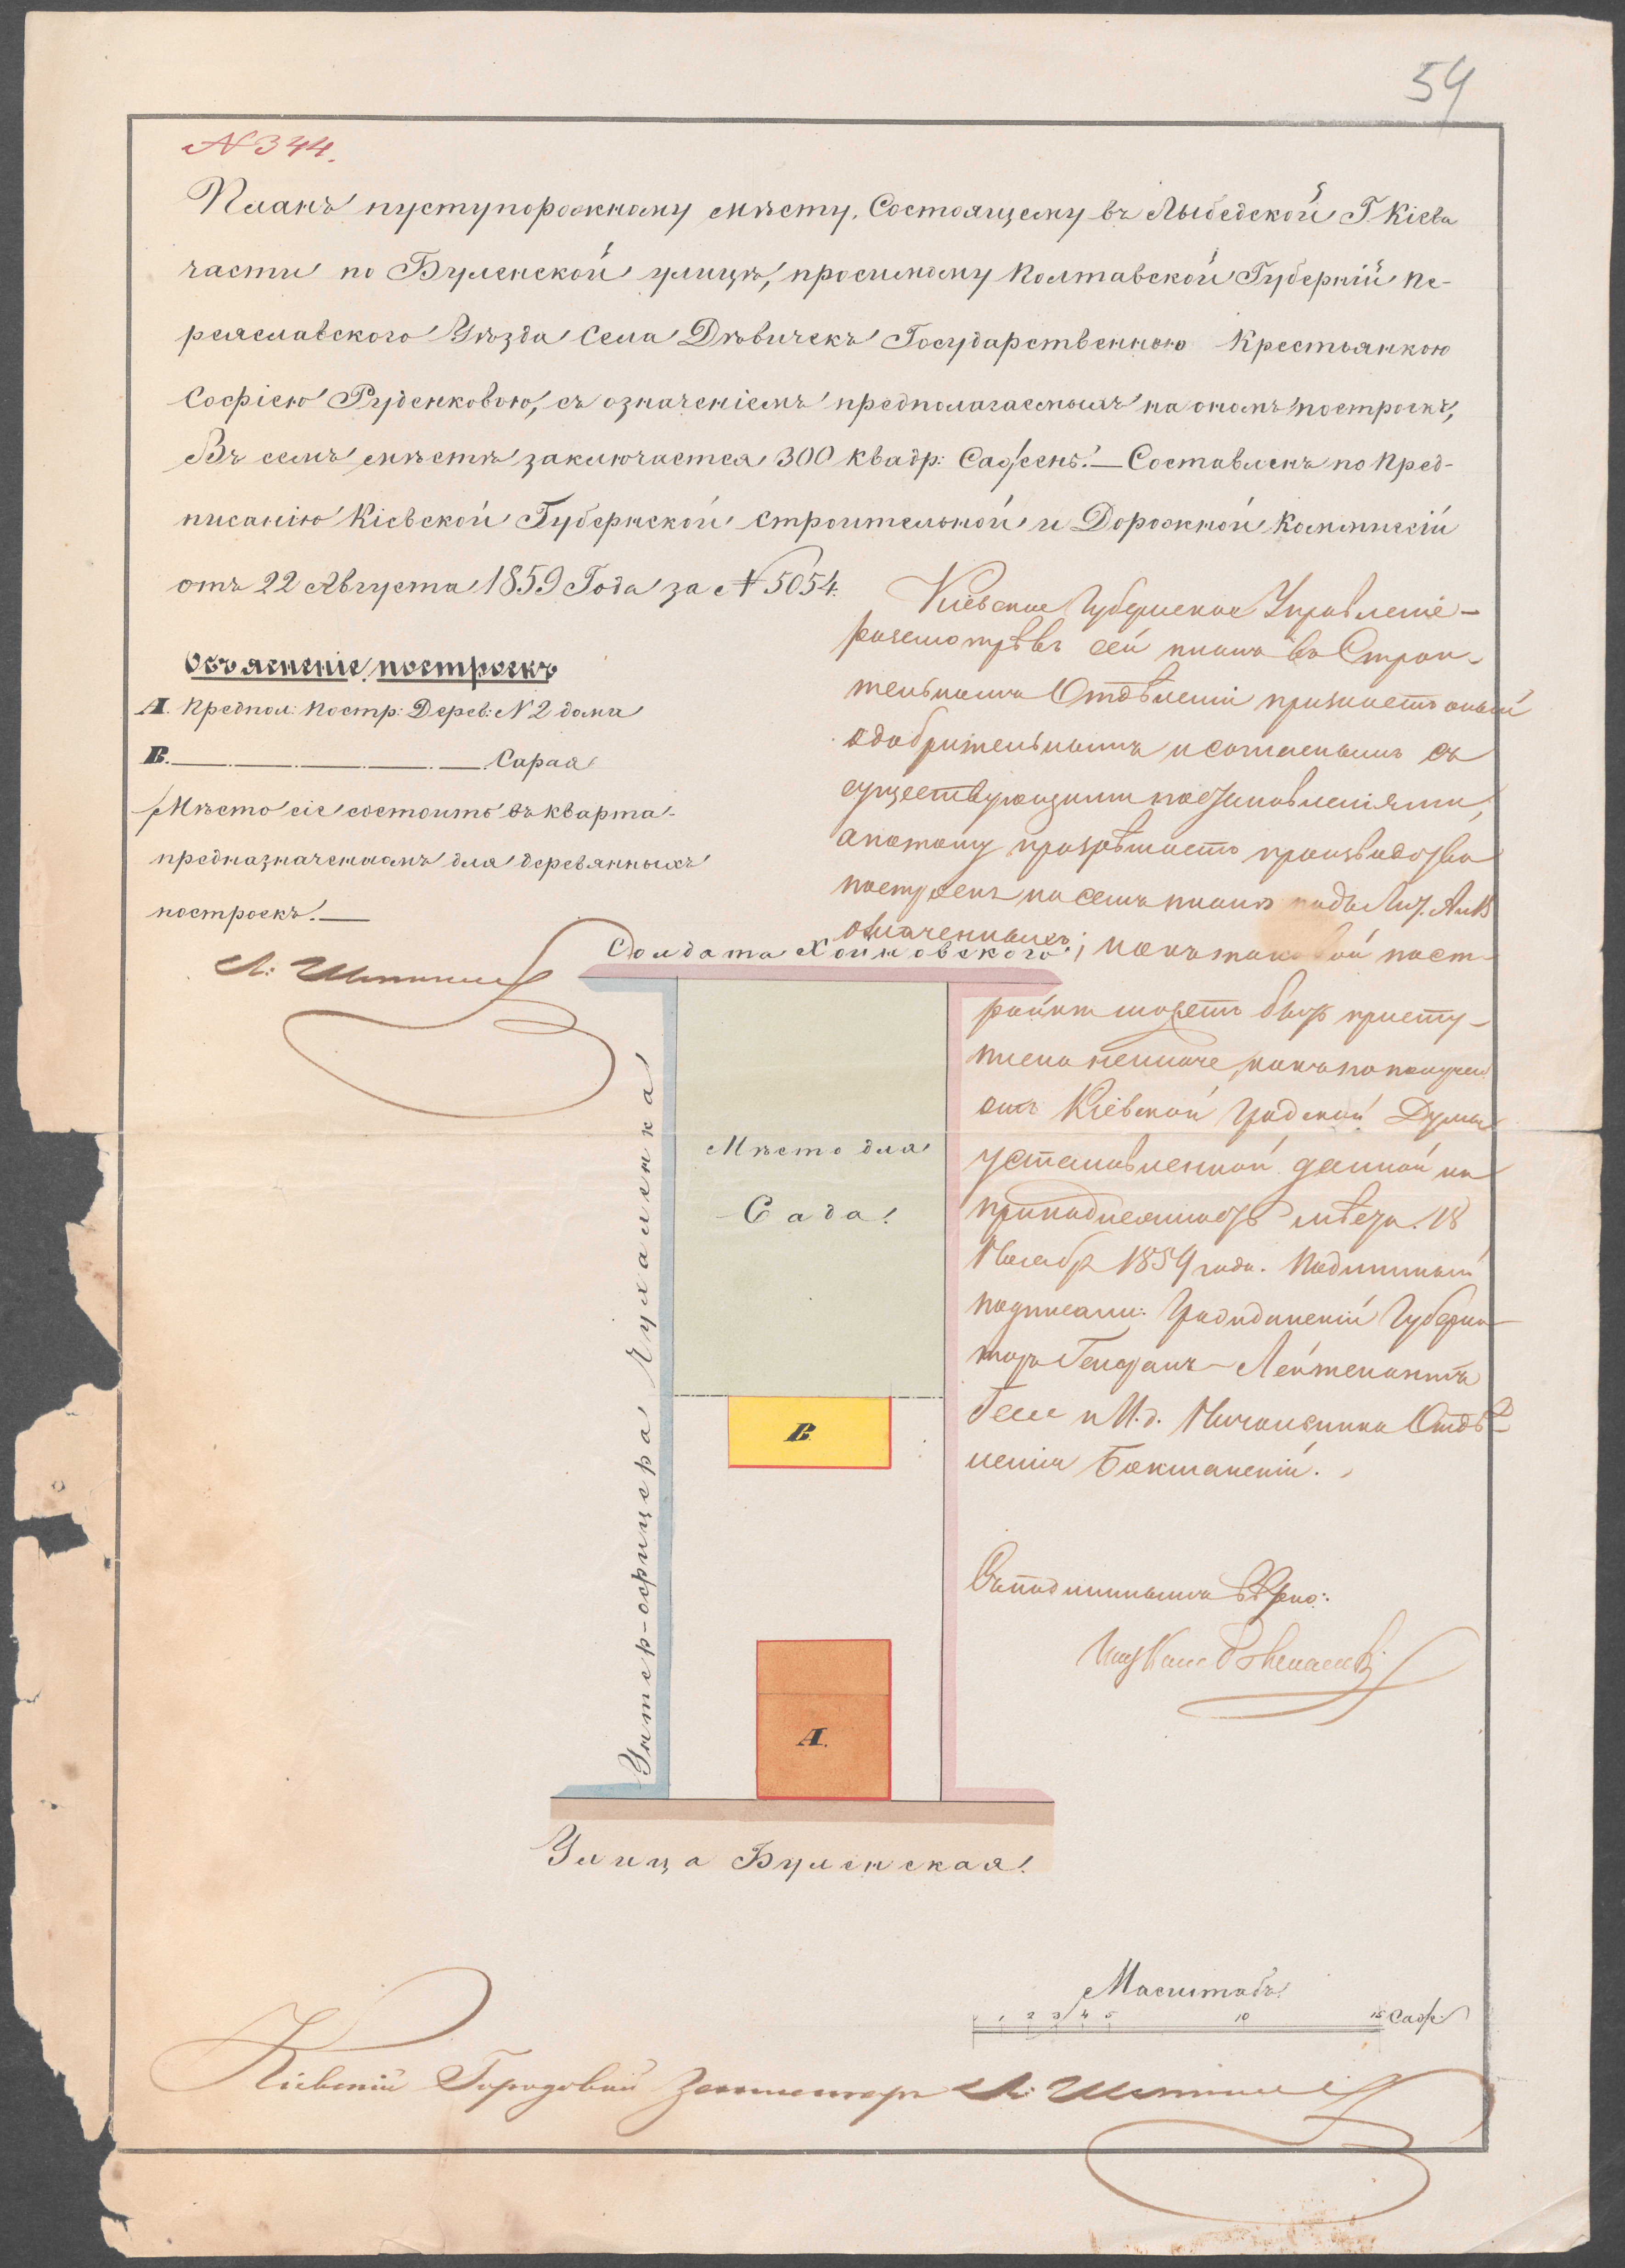 54
N 344.
Планъ пуступорожному мѣсту, Состоящему въ Лыбедской Г. Кіева
части по Буленской улицѣ, просимому Полтавской Губерніи Пе-
реяславского Уѣзда Села Дѣвичекъ Государственною Крестьянкою
Софіею Руденковою, съ означеніемъ предполагаемыхъ на ономъ построекъ,
Въ семъ мѣстѣ заключается 300 квадр: Сажень.— Составленъ по Пред-
писанію Кіевской Губернской строительной и Дорожной Коммиссіи
отъ 22 Августа 1859 Года за N 5054.
Объясненіе построекъ
А. Предпол: Постр: Дерев: N 2 дома
В. Сарая
Мѣсто сіе состоитъ въ кварта-
предназначенномъ для деревянныхъ
построекъ.—
Кіевское Губернское Управленіе
разсмотрѣвъ сей планъ въ Строи-
тельномъ Отдѣленіи признаетъ оный
одобрительнымъ и согласнымъ съ
существующими постановленіями,
а потому разрѣшаетъ производство
построекъ на семъ планѣ подъ Лит. А и В
означенныхъ; къ таковой пост-
ройкѣ можетъ быть присту-
плено неиначе, какъ по получен
отъ Кіевской Градской Думы
установленной данной на
принадлежность мѣста. 18
Ноября 1859 года. Подлинный
подписали: Гражданскій Губерна-
торъ Генералъ-Лейтенантъ
Гессе и И. д. Начальника Отдѣ-
ленія Бокщанскій.
Съ подлиннымъ вѣрно:
Солдата Хойновского
Унтер-офицера Чухаленка
Мѣсто для
Сада.
В
А.
Улица Буленская.
Масштабъ.
1 2 3 4 5 10 15 Саж:
Кіевскій Городовой Землемеръ Л: